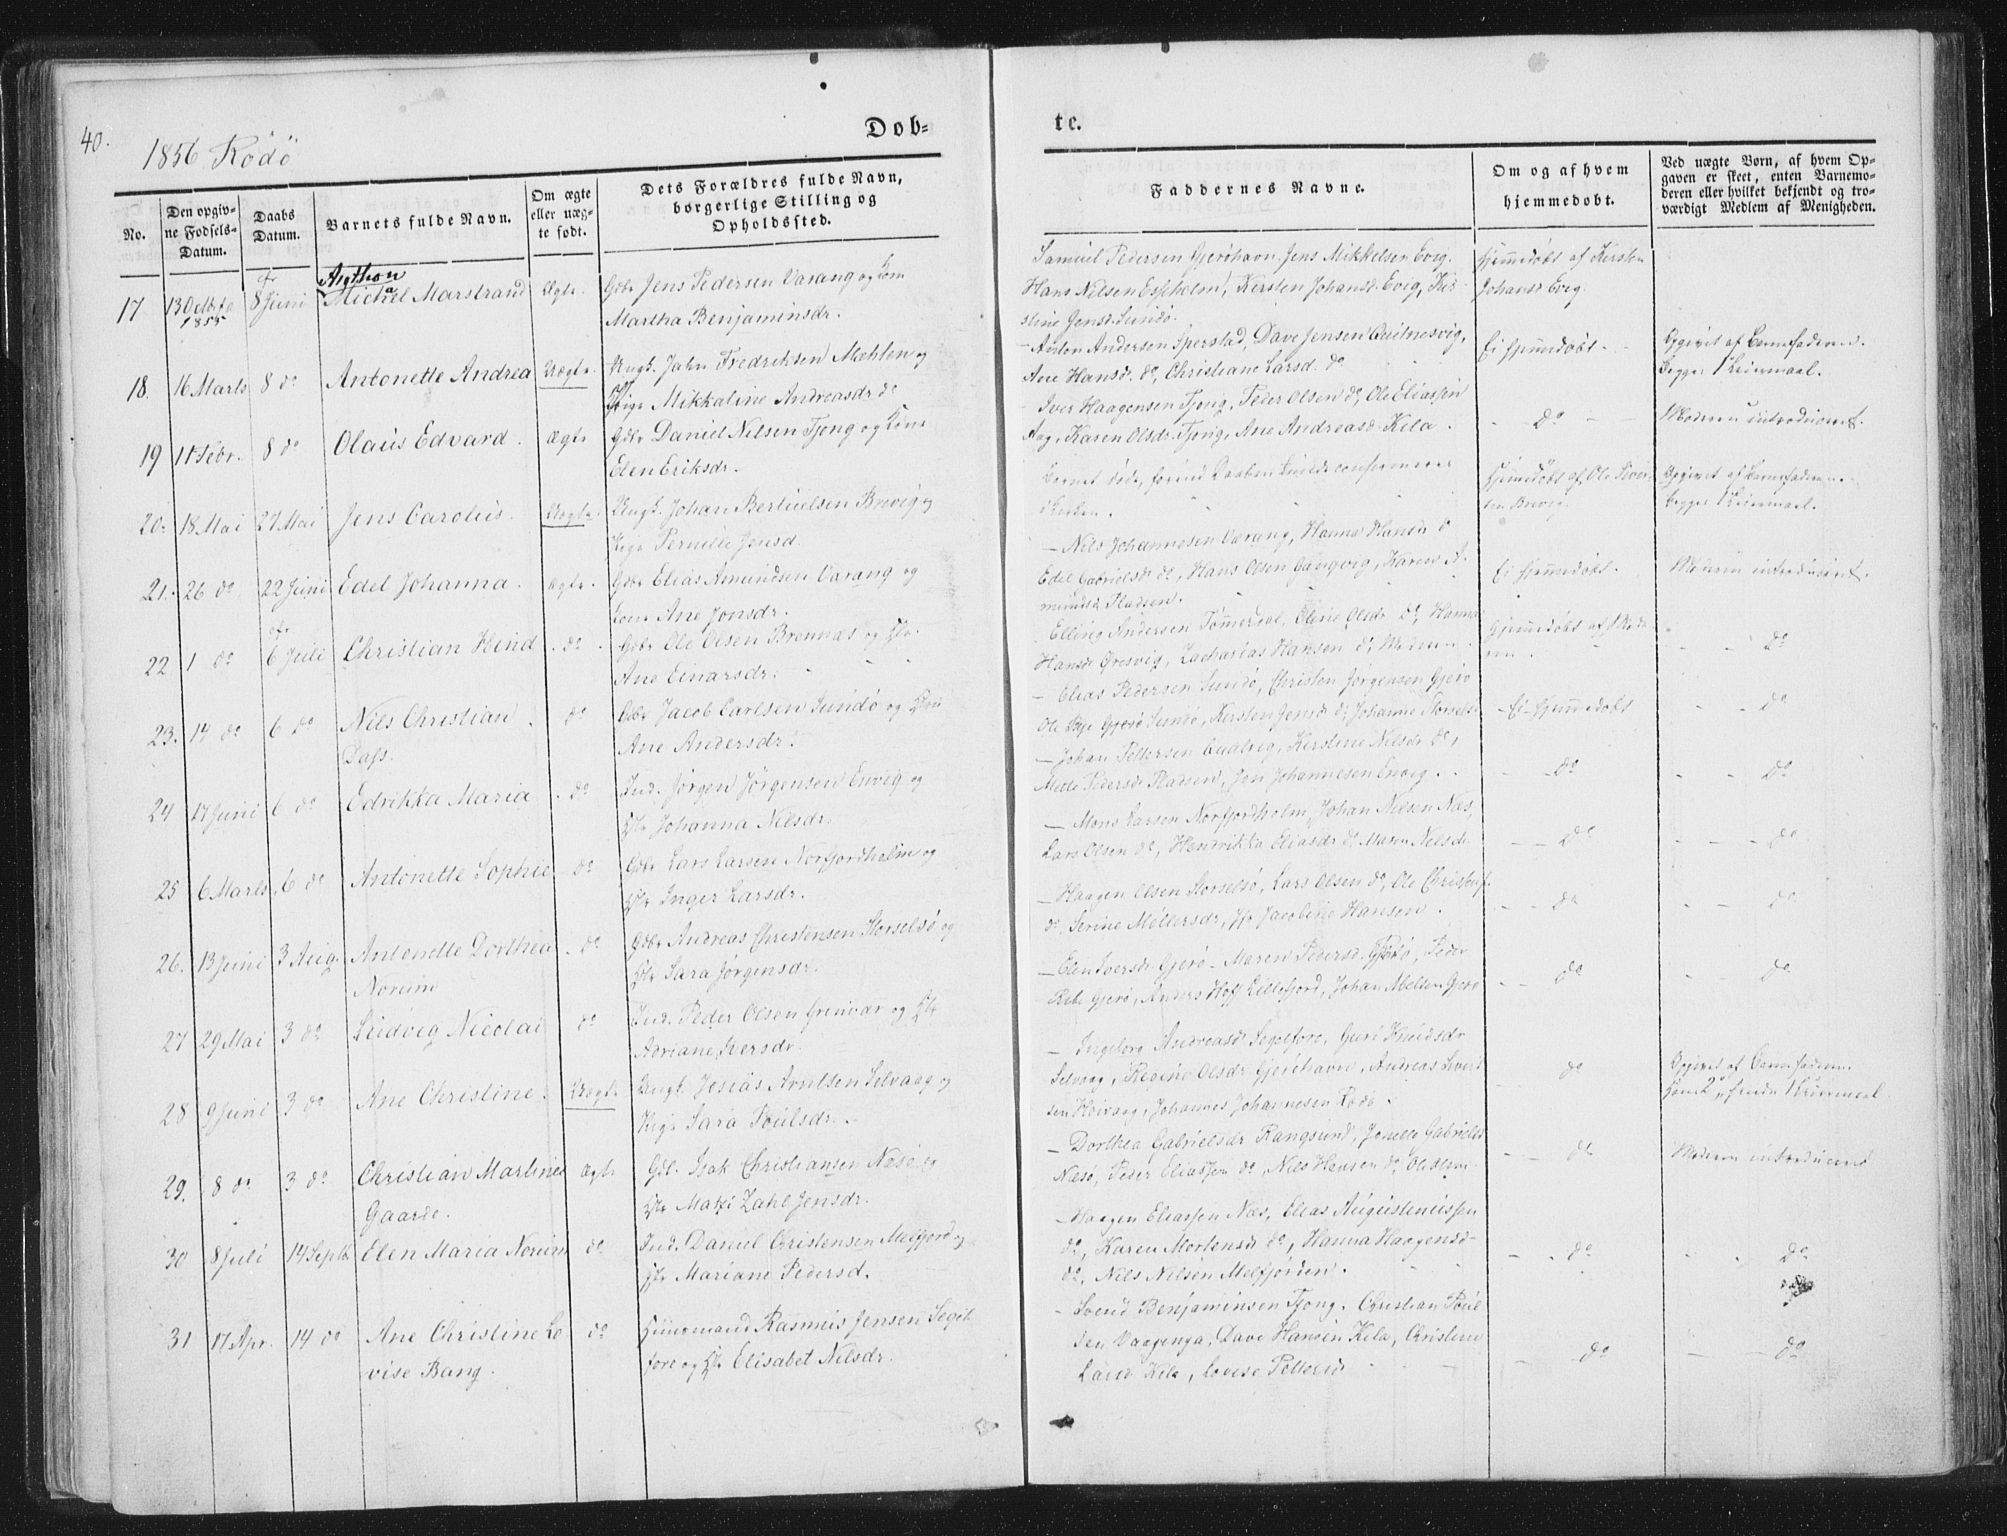 40.
1856 Rødø
Døb=
te.
No.
Den opgiv-
ne Fødsels-
Datum.
Daabs
Datum.
Barnets fulde Navn.
Om ægte
eller uæg-
te født.
Dets Forældres fulde Navn,
borgerlige Stilling og
Opholdssted.
Faddernes Navne.
Om og af hvem
hjemmedøbt.
Ved uægte Børn, af hvem Op-
gaven er skeet, enten Barnemo-
deren eller hvilket bekjendt og tro-
værdigt Medlem af Menigheden.
17 13 Octbr 1855 8 Juni Michael Marstrand Ægte. Gdbr Jens Pedersen Varang og Kone
Martha Benjaminsdr.
Samuel Pedersen Gjerøhavn. Jens Mikkelsen Evig.
Hans Nilsen Espholm, Kersten Johansd. Evig, Kir-
stine Jensd. Sundø.
Hjemmedøbt af Kersten
Johansd Evig.
18. 16 Marts 8 do Antonette Andrea Uægte. Ungk. John Fredriksen Mæhlen og
Pige Mikkaline Andreasdr do
Anton Andersen Sperstad, Dave Jensen Qvilnesvig,
Ane Hansd. do, Christiane Larsd. do
Ei hjemmedøbt.
Opgivet af Barnefaderen.
Begges 1 Leiermaal.
19 11 Febr. 8 do Olaus Edvard. Ægte Gdbr Daniel Nilsen Tjong og Kone
Elen Eriksdr.
Iver Haagensen Tjong, Peder Olsen do, Ole Eliassen
Aag, Karen Olsdr. Tjong, Ane Andreasd. Kila.
do
Moderen introduceret.
20. 18 Mai 27 Mai Jens Carolus. Uægte. Ungk. Johan Bertuelsen Brevig og
Pige Pernille Jensd.
Barnet døde, forind Daaben kunde confirmeres
Kirken.
Hjemmedøbt af Ole Siver-
sen Brevig.
Opgivet af Barnefaderen.
Begges 1 Leiermaal.
21. 26 do 22 Juni Edel Johanna. Ægte. Gdbr Elias Amundsen Varang og
Kone Ane Jonsdr.
Nils Johannesen Varang, Hanna Hansdr do
Edel Gabrielsdr do, Hans Olsen Gangvig, Karen A-
mundsd Pladsen.
Ei hjemmedøbt.
Moderen introduceret.
22 1 do 6 Juli Christian Hind do Gdbr Ole Olsen Brennæs og Hu.
Ane Einarsdr.
Elling Andersen Tømerdal, Oline Olsdr do, Hanna
Hansdr Øresvig, Zacharias Hansen do, Moderen
Hjemmedøbt af Mode-
ren.
do
23. 14 do 6 do Nils Christian
Dass.
do Gdbr Jacob Carlsen Sundø og Hu
Ane Andersdr.
Elias Pedersen Sundø, Christen Jørgensen Gjerø
Ole Gjerø Sundø, Kersten Jensd do, Johanne Storselsø
Ei hjemmedøbt
do
24 17 Juni 6 do Edrikka Maria do Ind. Jørgen Jørgensen Envig og
Hu Johanna Nilsdr.
Johan Pettersen Kerstine Nilsdr do,
Mette Pedersdr Pladsen, Jon Johannesen Envig.
do
do
25 6 Marts 6 do Antonette Sophie do Gdbr Lars Larsen Norfjordholm og
Hu Inger Larsdr.
Mons Larsen Norfjordholm, Johan Nilsen Næs,
Lars Olsen do, Hendrikka Eliasdr do, Maren Nilsdr
do
do
26. 13 Juni 3 Aug. Antonette Dorthea
Norum
do Gdbr Andreas Christensen Storselsø og
Hu Sara Jørgensdr.
Haagen Olsen Storselsø, Lars Olsen do, Ole Christens.
do, Serine Møllersdr, Jfr Jacobine Hansen.
do
do
27 29 Mai 3 do Ludvig Nicolai do Ind. Peder Olsen Grenvær og Hu
Adriane Iversdr.
Elen Iversdr Gjerø. Maren Pedersd. Gjerø, Peder
Rebe Gjerø, Anders Hoff Lillefjord, Johan Nielsen Gjerø
do
do
28 9 Juni 3 do Ane Christine. Uægte Ungk. Jesias Arntsen Selvaag og
Pige Sara Poulsdr.
Ingeborg Andreasd. Segelfore, Guri Knudsdr
Selvaag, Regine Olsdr Gjerøhavn, Andreas Sivert-
sen Høivaag, Johannes Johannesen Rødø.
do
Opgivet af Barnefaderen.
Hans 2, hendes 1 Leiermaal
29. 8 do 3 do Christian Martines
Gaarde.
Ægte Gdb. Isak Christiansen Næsø og
Hu Matti Zahl Jensdr.
Dorthea Gabrielsdr Rangsund, Jonette Gabrielsd
Næsø, Peder Eliassen do, Nils Hansen do, Ole Olsen
do
Moderen introduceret
30 8 Juli 14 Septbr Elen Maria Norum do Ind. Daniel Christensen Melfjord og
Hu Mariane Pedersd.
Haagen Eliassen Næs, Elias Augustinussen
do, Karen Mortensdr do, Hanna Haagensd.
do, Nils Nilsen Melfjorden.
do
do
31 17 Apr. 14 do Ane Christine Lo
vise Bang.
do Huusmand Rasmus Jensen Segel
fore og Hu Elisabet Nilsdr.
Svend Benjaminsen Tjong, Christian Poul
sen Vaagenga, Dave Hansen Kila, Christine
Laud Kila, Lovise Pettersd
do
do